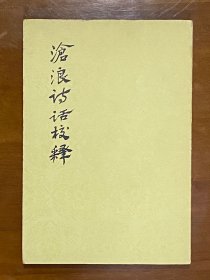 滄浪诗话校释